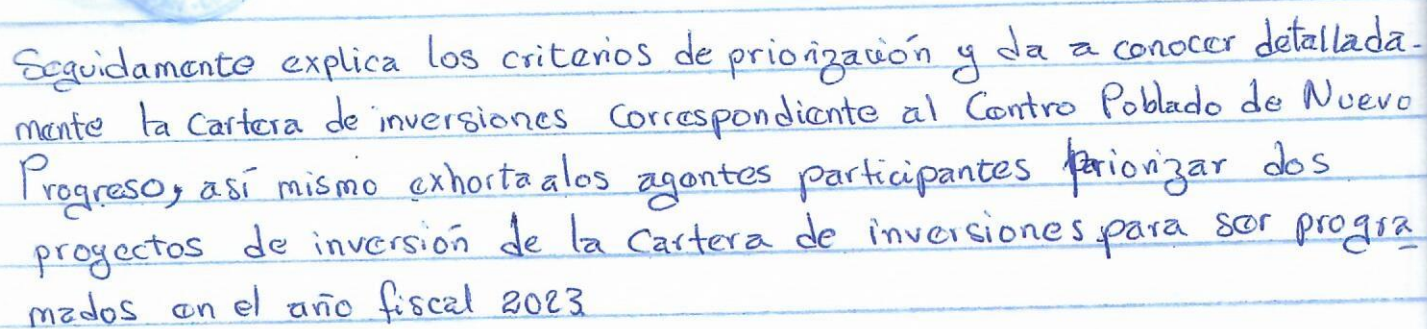 Seguidamente explica los criterios de priorización y da a conocer detallada-
mente la Cartera de inversiones Correspondiente al Centro Poblado de Nuevo
Progreso, así mismo exhorta a los agentes participantes priorizar dos
proyectos de inversión de la Cartera de inversiones para ser progra
mados en el año fiscal 2023